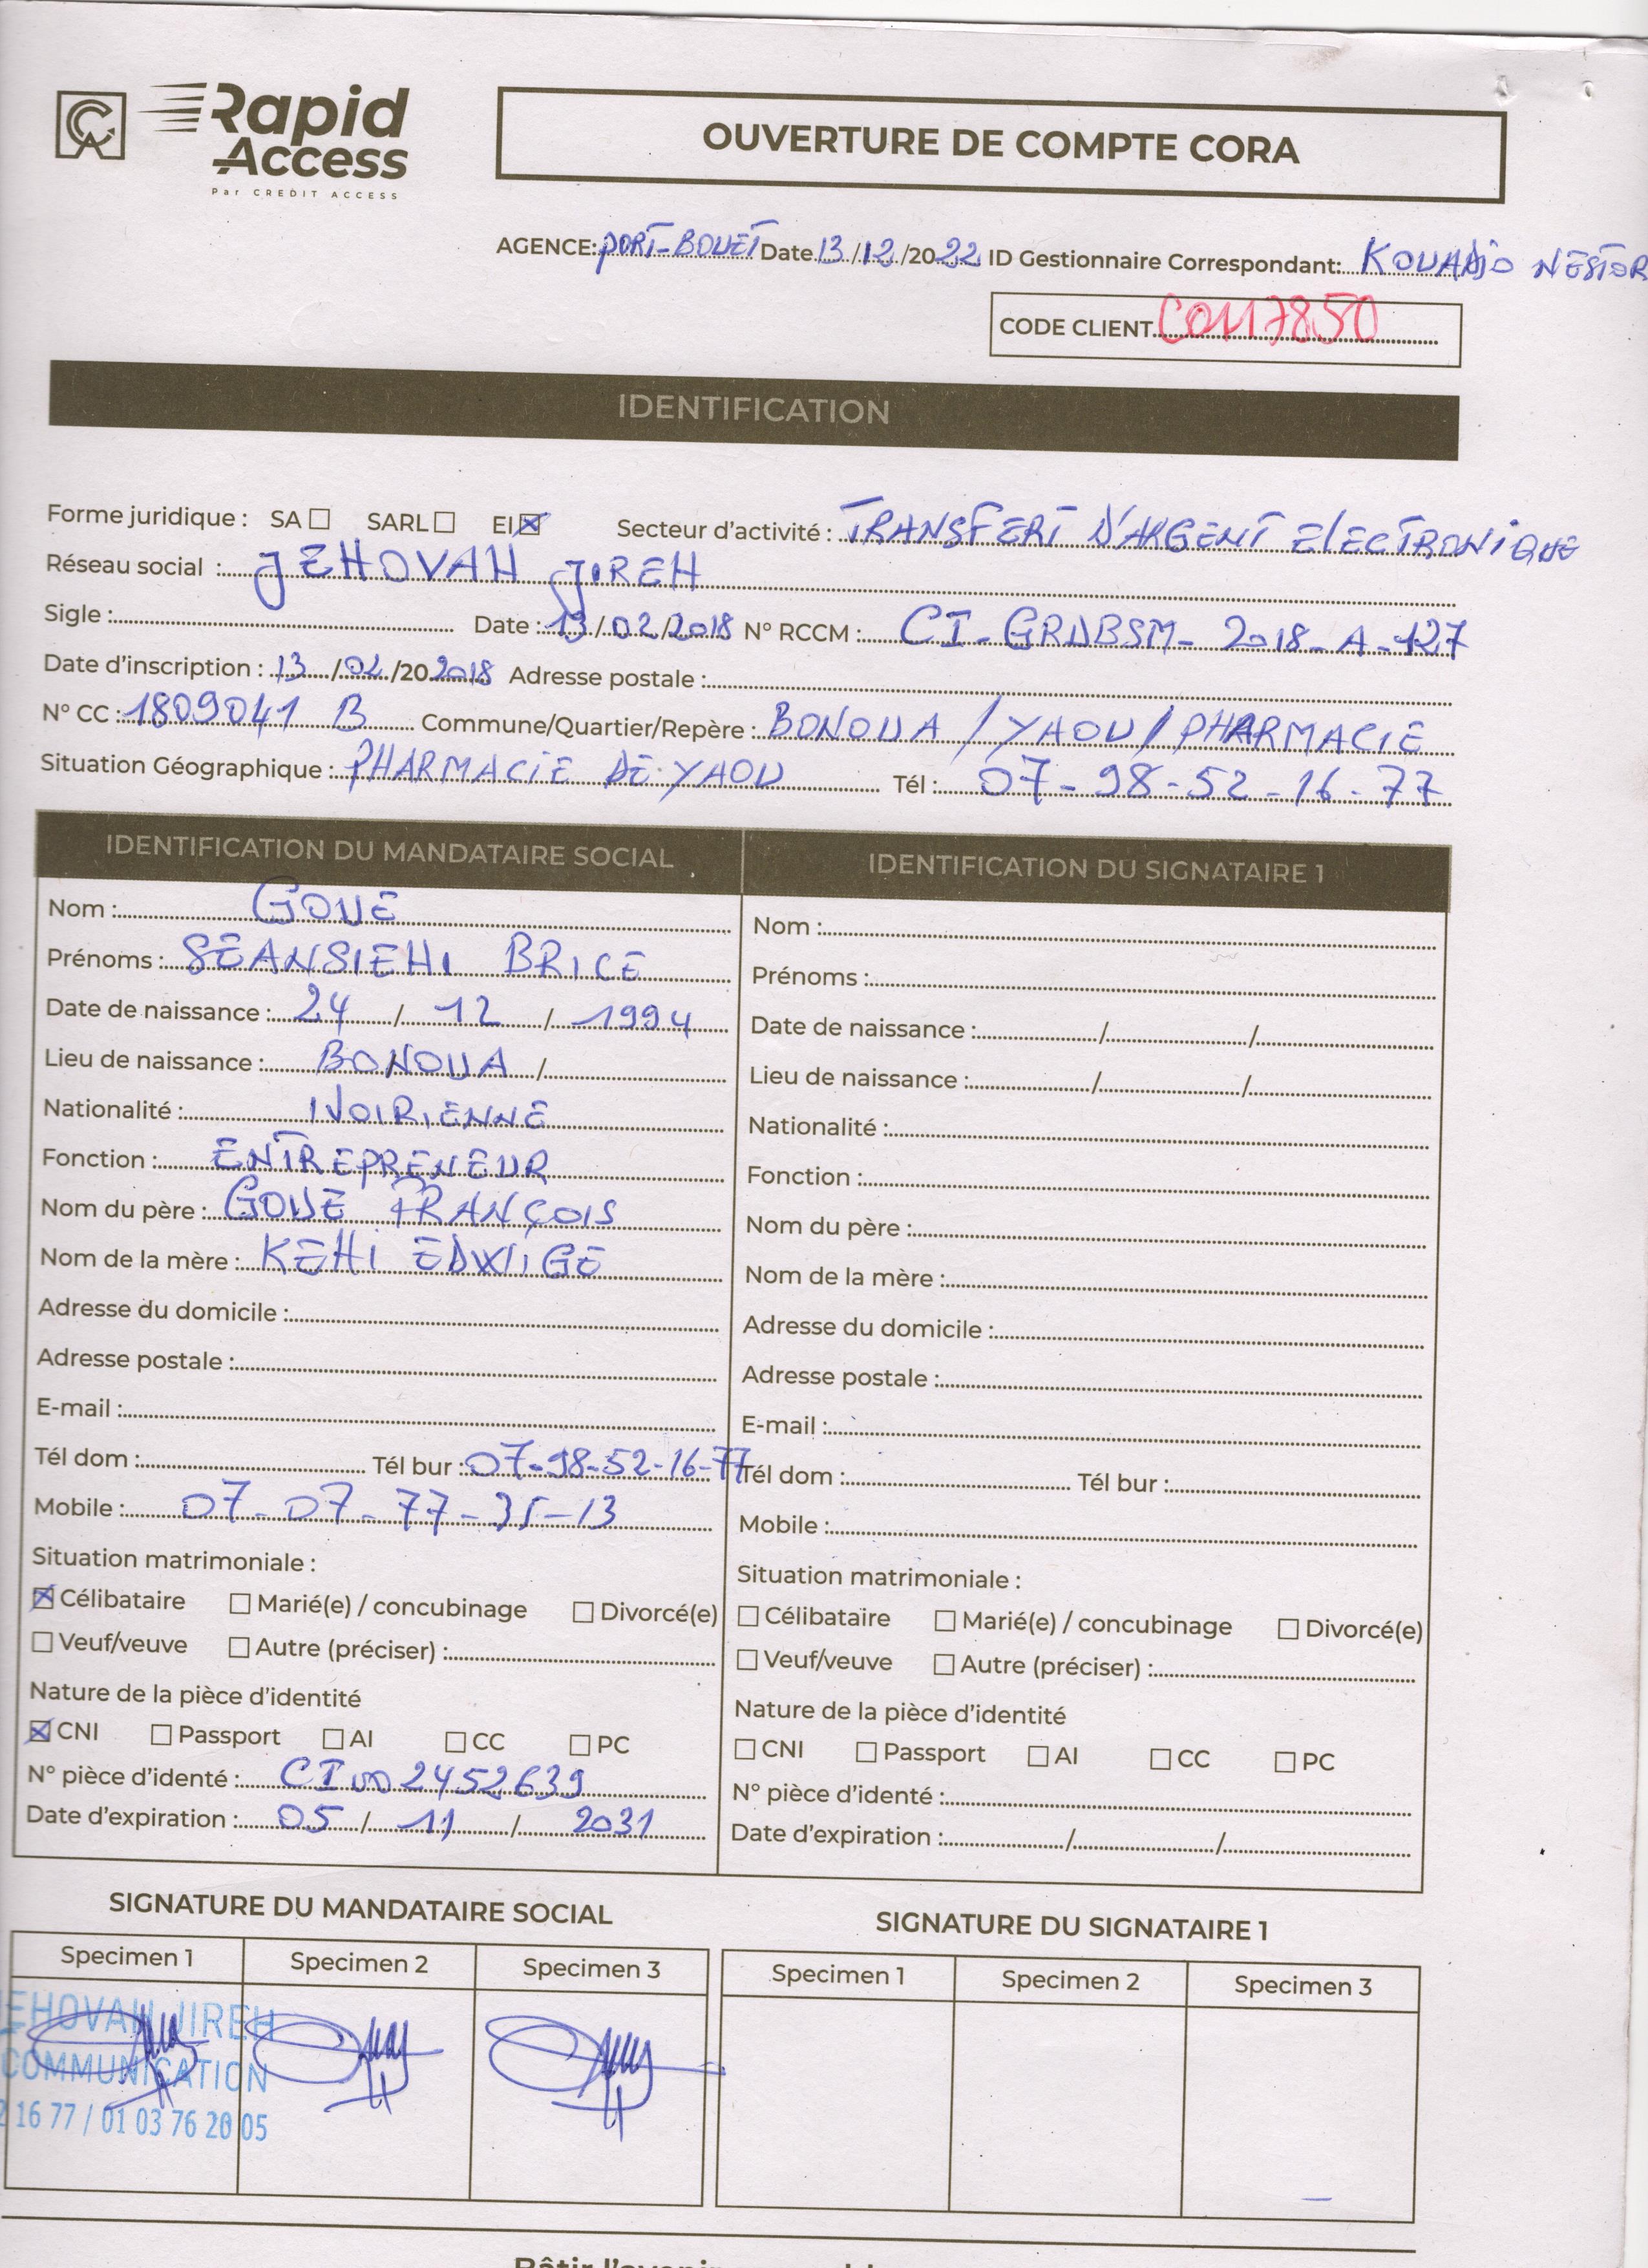 Rapid
Access
Par CREDIT ACCESS
OUVERTURE DE COMPTE CORA
AGENCE: PORT-BOUET Date 13/12/2022 ID Gestionnaire Correspondant: KOUADIO NESTOR
CODE CLIENT C0117850
IDENTIFICATION
Forme juridique : SA ☐ SARL ☐ EI ☒ Secteur d'activité : TRANSFERT D'ARGENT ELECTRONIQUE
Réseau social : JEHOVAH JIREH
Sigle : Date : 13/02/2018 N° RCCM : CI-GRDBSM-2018-A-127
Date d'inscription : 13/02/20 2018 Adresse postale :
N° CC : 1809041 B Commune/Quartier/Repère : BONOUA / YAOU / PHARMACIE
Situation Géographique : PHARMACIE DE YAOU Tél : 07-98-52-16-77
IDENTIFICATION DU MANDATAIRE SOCIAL
Nom : GOUE
Prénoms : SEANSIEHI BRICE
Date de naissance : 24 / 12 / 1994
Lieu de naissance : BONOUA /
Nationalité : IVOIRIENNE
Fonction : ENTREPRENEUR
Nom du père : GOUE FRANÇOIS
Nom de la mère : KEHI EDWIGE
Adresse du domicile :
Adresse postale :
E-mail :
Tél dom : Tél bur : 07-98-52-16-77
Mobile : 07-07-77-35-13
Situation matrimoniale :
☒ Célibataire ☐ Marié(e) / concubinage ☐ Divorcé(e)
☐ Veuf/veuve ☐ Autre (préciser) :
Nature de la pièce d'identité
☒ CNI ☐ Passport ☐ AI ☐ CC ☐ PC
N° pièce d'identé : CI002452639
Date d'expiration : 05 / 11 / 2031
IDENTIFICATION DU SIGNATAIRE 1
Nom :
Prénoms :
Date de naissance : / /
Lieu de naissance : / /
Nationalité :
Fonction :
Nom du père :
Nom de la mère :
Adresse du domicile :
Adresse postale :
E-mail :
Tél dom : Tél bur :
Mobile :
Situation matrimoniale :
☐ Célibataire ☐ Marié(e) / concubinage ☐ Divorcé(e)
☐ Veuf/veuve ☐ Autre (préciser) :
Nature de la pièce d'identité
☐ CNI ☐ Passport ☐ AI ☐ CC ☐ PC
N° pièce d'identé :
Date d'expiration : / /
SIGNATURE DU MANDATAIRE SOCIAL
Specimen 1 Specimen 2 Specimen 3
EHOVAH JIREH
COMMUNICATION
2 16 77 / 01 03 76 20 05
SIGNATURE DU SIGNATAIRE 1
Specimen 1 Specimen 2 Specimen 3
Bâtir l'avenir